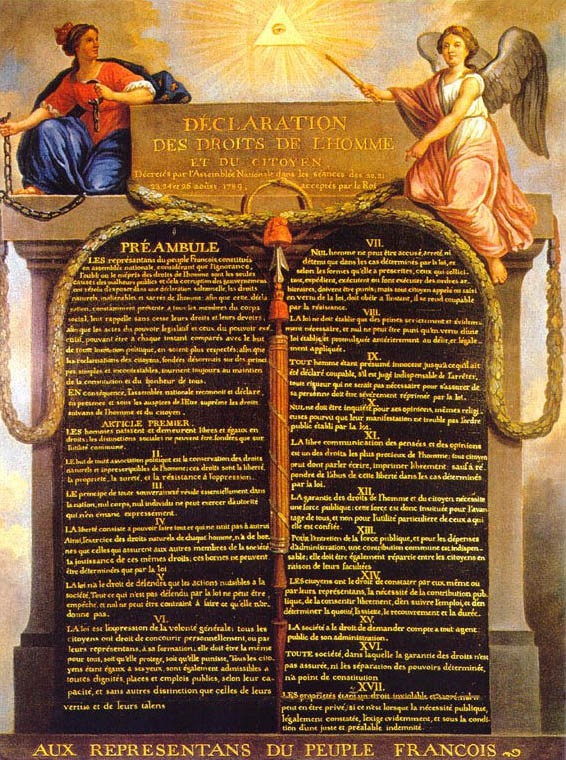 DÉCLARATION
DES DROITS DE L'HOMME
ET DU CITOYEN,
Décrétés par l'Assemblée Nationale dans les séances des 20, 21
23, 24 et 26 août 1789, acceptés par le Roi
PRÉAMBULE
LES représentans du peuple Francois, constitués
en assemblée nationale, considérant que l'ignorance,
l'oubli ou le mépris des droits de l'homme sont les seules
causes des malheurs publics et de la corruption des gouvernemens
ont résolu d'exposer dans une déclaration solemnelle, les droits
naturels, inaliénables et sacrés de l'homme; afin que cette décla-
ration, constamment présente à tous les membres du corps
social, leur rappelle sans cesse leurs droits et leurs devoirs;
afin que les actes du pouvoir législatif et ceux du pouvoir exé-
cutif, pouvant être à chaque instant comparés avec le but
de toute institution politique, en soient plus respectés; afin que
les réclamations des citoyens, fondées désormais sur des princi-
pes simples et incontestables, tournent toujours au maintien
de la constitution et du bonheur de tous.
EN conséquence, l'assemblée nationale reconnoit et déclare,
en présence et sous les auspices de l'Etre suprême les droits
suivans de l'homme et du citoyen.
ARTICLE PREMIER.
LES hommes naissent et demeurent libres et égaux en
droits; les distinctions sociales ne peuvent être fondées que sur
l'utilité commune.
II.
LE but de toute association politique est la conservation des droits
naturels et imprescriptibles de l'homme; ces droits sont la liberté,
la propriété, la sureté, et la résistance à l'oppression.
III.
LE principe de toute souveraineté réside essentiellement dans
la nation, nul corps, nul individu ne peut exercer d'autorité
qui n'en émane expressement.
IV.
LA liberté consiste à pouvoir faire tout ce qui ne nuit pas à autrui
Ainsi, l'exercice des droits naturels de chaque homme, n'a de bor-
nes que celles qui assurent aux autres membres de la société
la jouissance de ces mêmes droits; ces bornes ne peuvent
être déterminées que par la loi
V.
LA loi n'a le droit de défendre que les actions nuisibles à la
société. Tout ce qui n'est pas défendu par la loi ne peut être
empêché, et nul ne peut être contraint à faire ce qu'elle n'or-
donne pas.
VI.
LA loi est l'expression de la volonté générale; tous les
citoyens ont droit de concourir personnellement, ou par
leurs représentans, à sa formation; elle doit être la même
pour tous, soit qu'elle protège, soit qu'elle punisse. Tous les cito-
yens étant égaux à ses yeux, sont également admissibles à
toutes dignités, places et emplois publics, selon leur ca-
pacité, et sans autres distinction que celles de leurs
vertus et de leurs talens
VII.
NUL homme ne peut être accusé, arreté, ni
détenu que dans les cas déterminés par la loi, et
selon les formes qu'elle a prescrites, ceux qui sollici-
tent, expédient, exécutent ou font exécuter des ordres ar-
bitraires, doivent être punis; mais tout citoyen appelé ou saisi
en vertu de la loi, doit obéir à l'instant, il se rend coupable
par la résistance.
VIII.
LA loi ne doit établir que des peines strictement et évidem-
ment nécessaires, et nul ne peut être puni qu'en vertu d'une
loi établie et promulguée antérieurement au délit, et légale-
ment appliquée.
IX.
TOUT homme étant présumé innocent jusqu'à ce qu'il ait
été déclaré coupable, s'il est jugé indispensable de l'arrêter,
toute rigueur qui ne serait pas nécessaire pour s'assurer de
sa personne doit être sévèrement réprimée par la loi.
X.
NUL ne doit être inquiété pour ses opinions, mêmes religi-
euses pourvu que leur manifestation ne trouble pas l'ordre
public établi par la loi.
XI.
LA libre communication des pensées et des opinions
est un des droits les plus précieux de l'homme; tout citoyen
peut donc parler, écrire, imprimer librement; sauf à ré-
pondre de l'abus de cette liberté dans les cas déterminés
par la loi.
XII.
LA garantie des droits de l'homme et du citoyen nécessite
une force publique; cette force est donc instituée pour l'avan-
tage de tous, et non pour l'utilité particulière de ceux a qui
elle est confiée.
XIII.
Pour l'entretien de la force publique, et pour les dépenses
d'administration, une contribution commune est indispen-
sable; elle doit être également répartie entre les citoyens en
raison de leurs facultées
XIV.
LES citoyens ont le droit de constater par eux même ou
par leurs représentans, la nécessité de la contribution pub-
lique, de la consentir librement, d'en suivre l'emploi, et d'en
déterminer la quotité, l'assiette, le recouvrement et la durée.
XV.
LA société a le droit de demander compte a tout agent
public de son administration.
XVI.
TOUTE société, dans laquelle la garantie des droits n'est
pas assurée, ni les séparation des pouvoirs déterminée,
n'a point de constitution
XVII.
LES propriétés étant un droit inviolable et sacré, nul ne
peut en être privé, si ce n'est lorsque la nécessité publique,
légalement constatée, l'exige évidemment, et sous la condi-
tion d'une juste et préalable indemnité.
AUX REPRESENTANS DU PEUPLE FRANCOIS